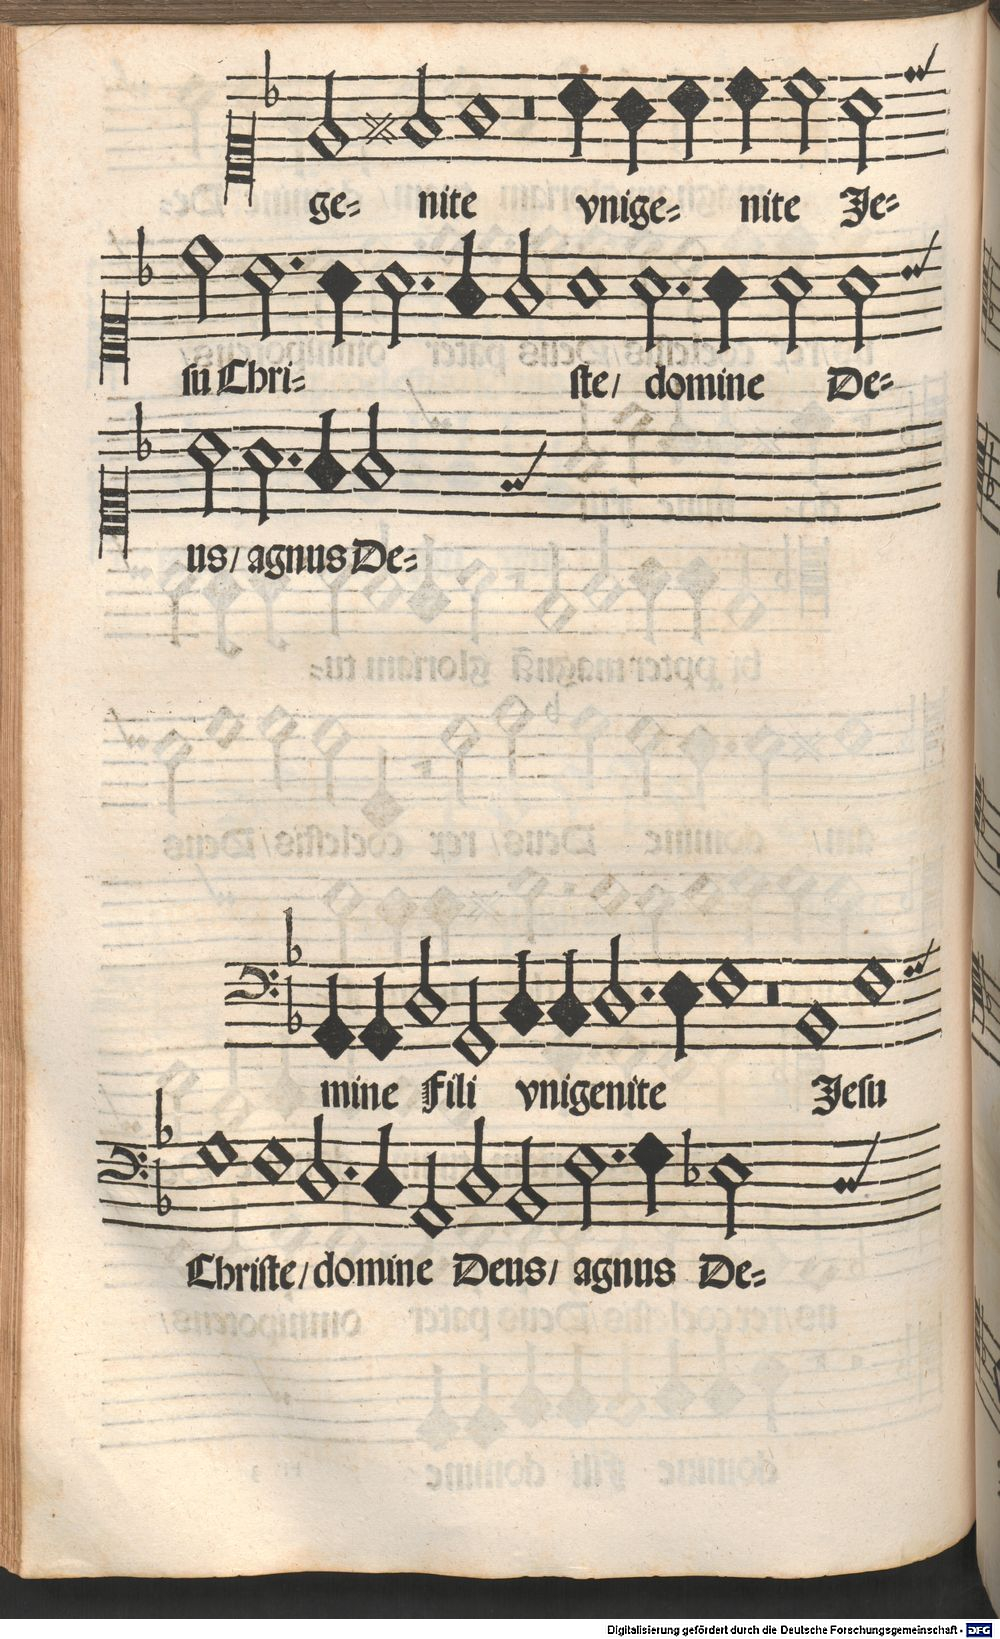 ge= nite vnige= nite Je=
su Chri= ste/ domine De=
us/ agnus De=
mine Fili vnigenite Jesu
Christe/ domine Deus/ agnus De=
Digitalisierung gefördert durch die Deutsche Forschungsgemeinschaft - DFG